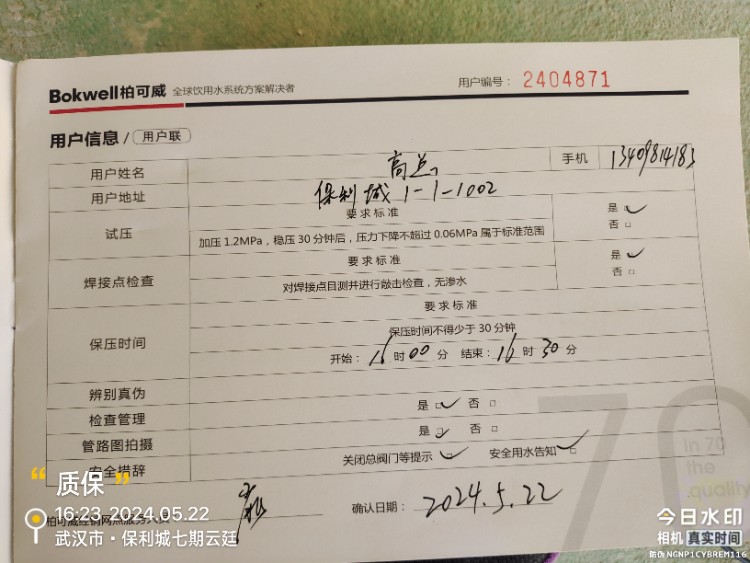 Bokwell柏可威 全球饮用水系统方案解决者 用户编号： 2404871
用户信息 / 用户联
用户姓名 高总 手机 13409814183
用户地址 保利城 1-1-1002
试压 要求标准 是
加压1.2MPa，稳压30分钟后，压力下降不超过0.06MPa属于标准范围 否
焊接点检查 要求标准 是
对焊接点目测并进行敲击检查，无渗水 否
保压时间 要求标准
保压时间不得少于30分钟
开始： 16 时 00 分 结束： 16 时 30 分
辨别真伪
检查管理 是 否
管路图拍摄 是 否
安全措辞 关闭总阀门等提示 安全用水告知
柏可威经销网点服务人员 确认日期： 2024.5.22
70
In 70
the
quality
质保
16:23 2024.05.22
武汉市·保利城七期云廷
今日水印
相机 真实时间
防伪 NGNP1CYBREM116